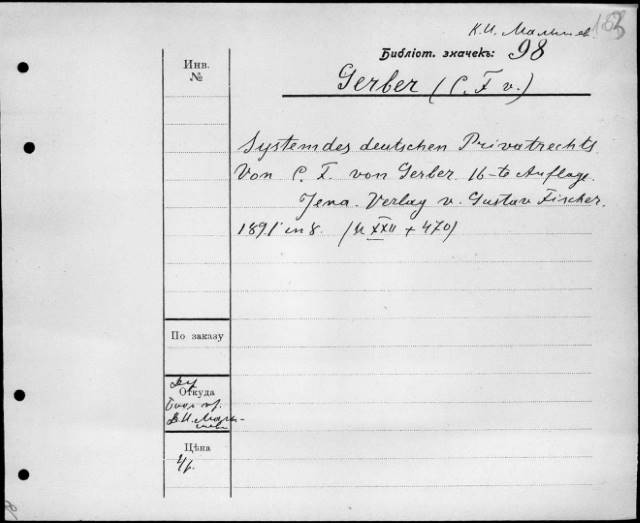 К. И. Малышев
183
Библіот. значекъ: 98
Инв.
№
Gerber (C. F. v.)
System des deutschen Privatrechts
Von C. F. von Gerber. 16-te Auflage.
Jena. Verlag v. Gustav Fischer.
1891 in 8. (XXII + 470)
По заказу
Откуда
Цѣна